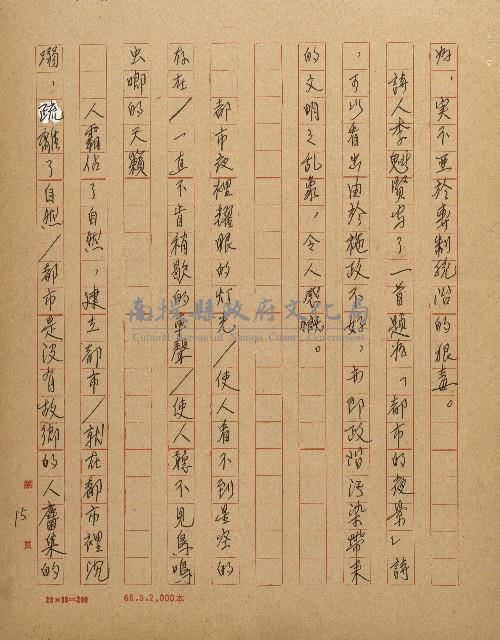 好，实不亚於專制統治的狠毒。
詩人李魁賢寫了一首題為「都市的夜景」詩
，可以看出由於施政不好，而即政階污染帶来
的文明之乱象，令人感慨。
都市夜裡耀眼的灯光／使人看不到星空的
存在／一直不肯稍歇的車聲／使人聽不見鳥鳴
虫唧的天籟
人霸佔了自然，建立都市／就在都市裡沉
溺，疏離了自然／都市是没有故鄉的人薈集的
第15頁
20×10=200
68.3.2,000本
南投縣政府文化局
Cultural Bureau of Nantou County Government